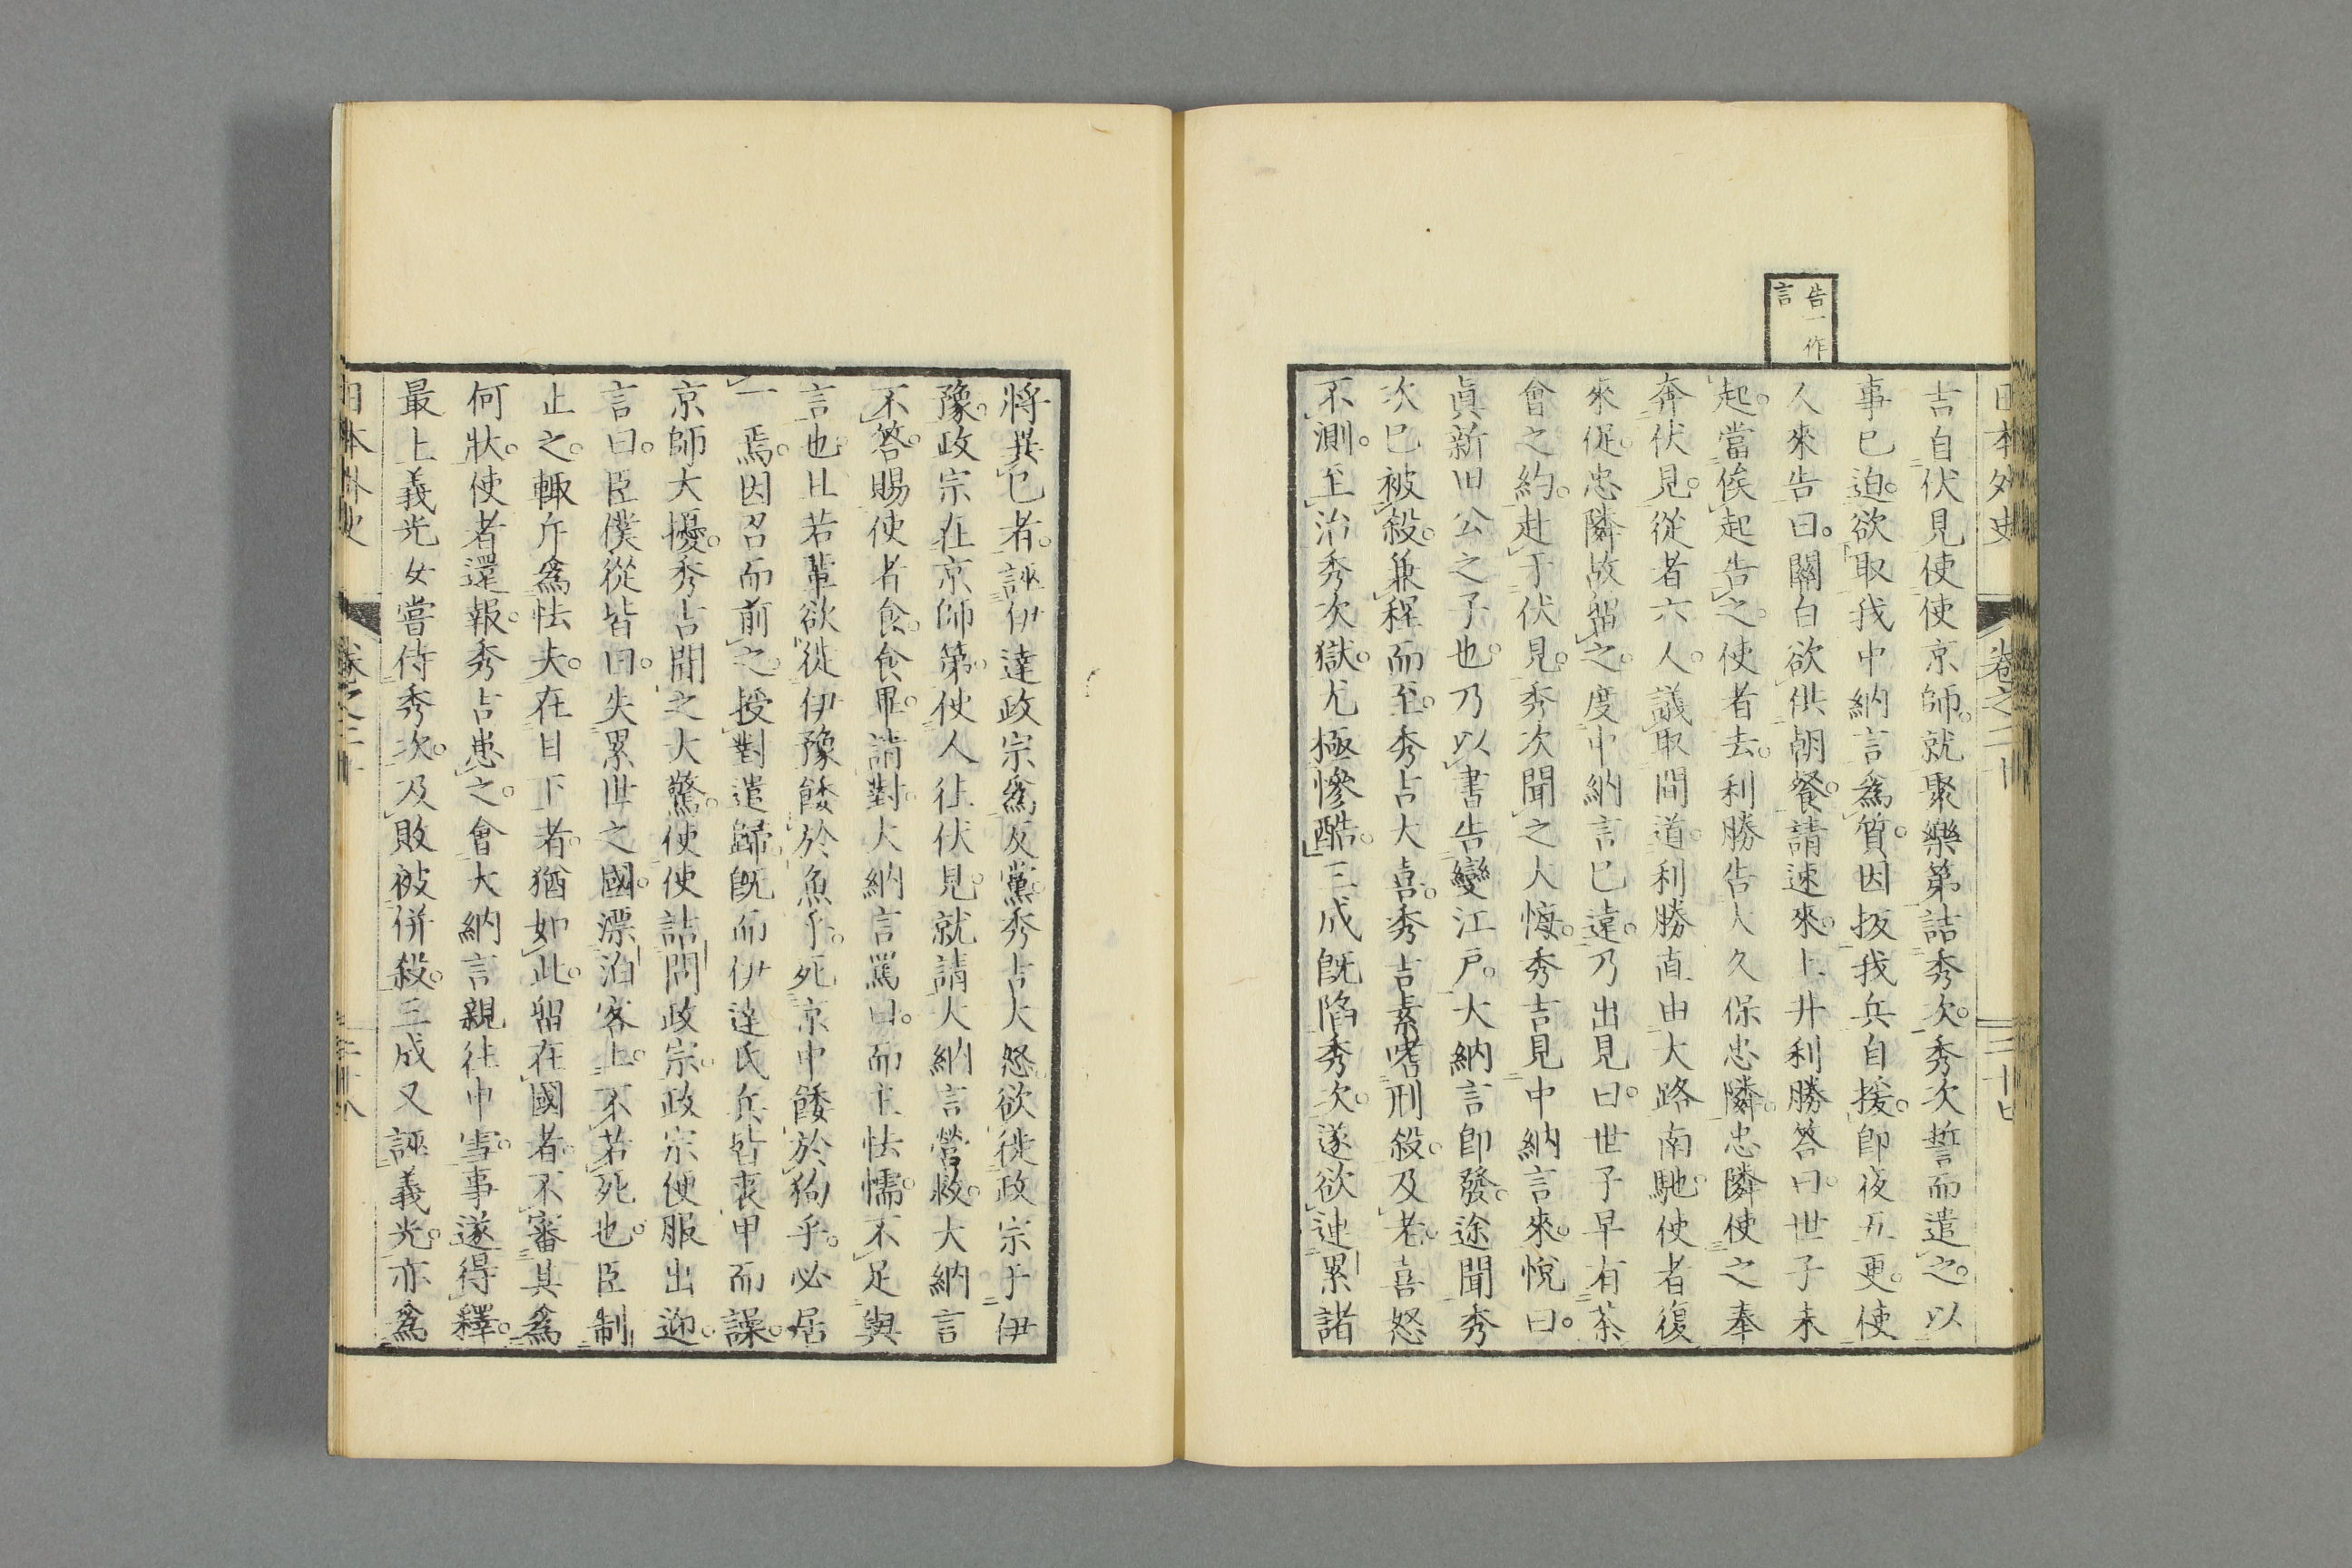 告一作
言
日本外史 卷之二十
吉自伏見使使京師。就聚樂第詰秀次。秀次誓而遣之。以
事已迫。欲取我中納言爲質。因扳我兵自援。即夜五更。使
人來告曰。關白欲供朝餐。請速來。上井利勝答曰。世子未
起。當俟起告之。使者去。利勝告大久保忠隣。忠隣使之奉
奔伏見。從者六人。議取間道。利勝直由大路南馳。使者復
來促。忠隣故留之。度中納言已遠。乃出見曰。世子早有茶
會之約。赴于伏見。秀次聞之大悔。秀吉見中納言來。悅曰。
眞新田公之子也。乃以書告變江戶。大納言即發。途聞秀
次已被殺。兼程而至。秀吉大喜。秀吉素嗜刑殺。及老。喜怒
不測。至治秀次獄。尤極慘酷。三成既陷秀次。遂欲連累諸
將異己者。誣伊達政宗爲反黨。秀吉大怒。欲徙政宗于伊
豫。政宗在京師第。使人往伏見。就請大納言營救。大納言
不答。賜使者食。食畢。請對。大納言罵曰。而主怯懦。不足與
言也。且若輩欲徙伊豫餧於魚乎。死京中餧於狗乎。必居
一焉。因召而前之。授對遣歸。既而伊達氏兵皆衷甲而譟。
京師大擾。秀吉聞之大驚。使使詰問政宗。政宗便服出迎。
言曰。臣僕從皆曰。失累世之國。漂泊客土。不若死也。臣制
止之。輙斥爲怯夫。在目下者。猶如此。留在國者。不審其爲
何狀。使者還報。秀吉患之。會大納言親往申雪。事遂得釋。
最上義光女嘗侍秀次。及敗被併殺。三成又誣義光。亦爲
日本外史 卷之二十